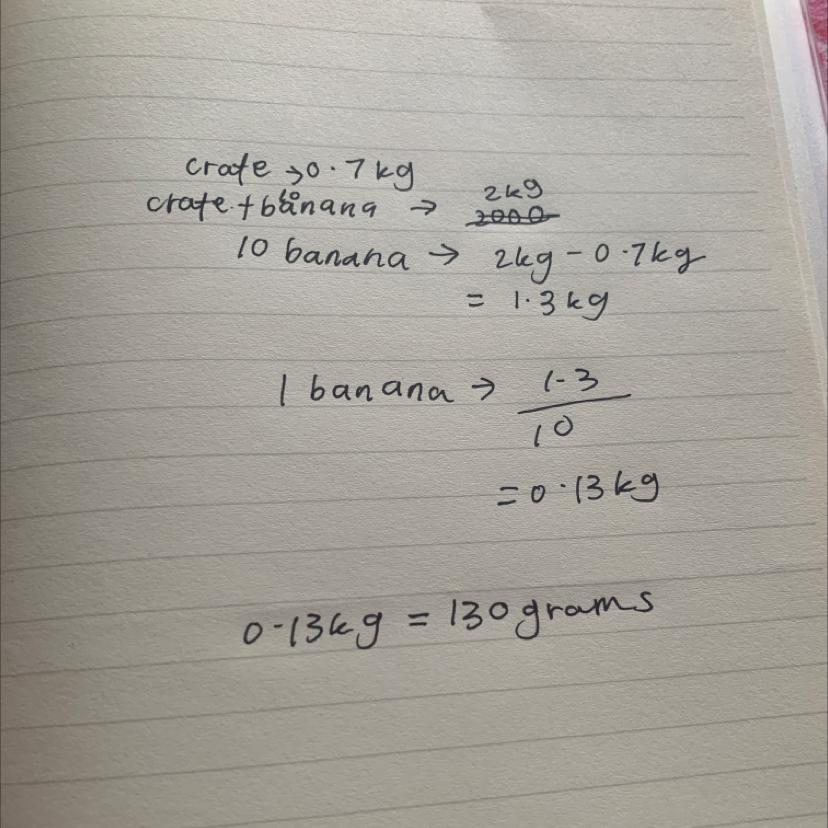 crate → 0.7 kg
crate + 10 banana → 2kg
10 banana → 2kg - 0.7kg
= 1.3 kg
1 banana → 1.3
10
= 0.13 kg
0.13kg = 130 grams